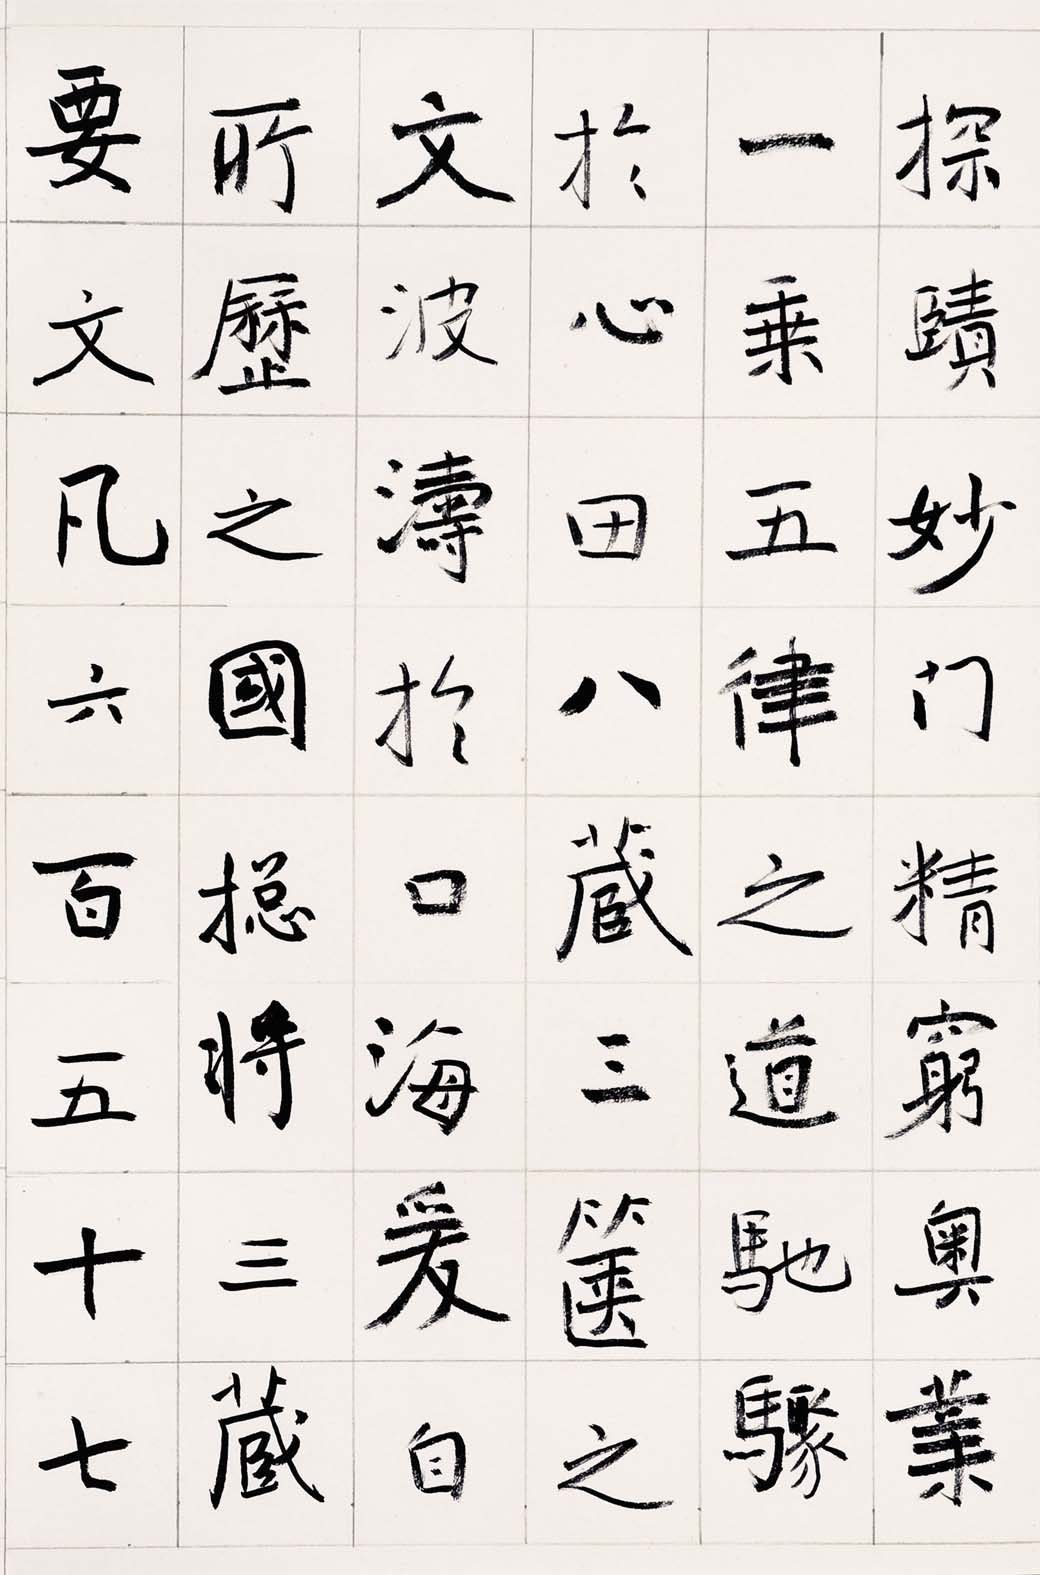 探賾妙门精窮奥業
一乗五律之道馳驟
扵心田八蔵三篋之
文波濤扵口海爰自
所歷之國摠将三蔵
要文凡六百五十七